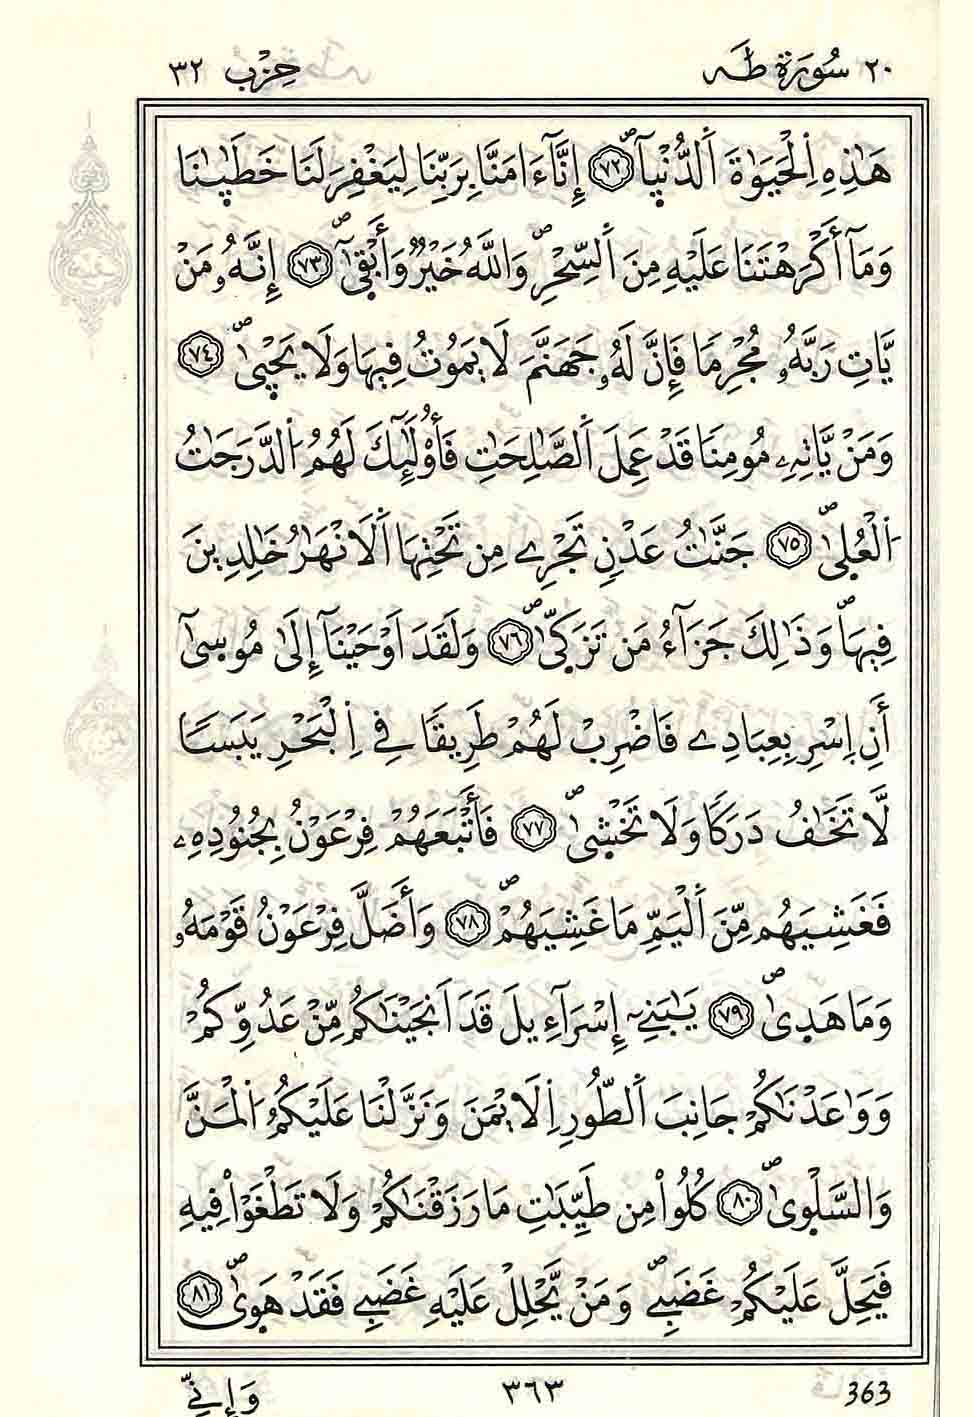 ٢٠ سُورَةُ طَهَ حِزْب ٣٢
هَٰذِهِ اِ۬لْحَيَوٰةَ اَ۬لدُّنْي۪آۖ ٧٢ إِنَّآ ءَامَنَّا بِرَبِّنَا لِيَغْفِرَ لَنَا خَطَٰيٰ۪نَا
وَمَآ أَكْرَهْتَنَا عَلَيْهِ مِنَ اَ۬لسِّحْرِۖ وَاللَّهُ خَيْرٌ وَأَبْق۪ىٰٓۖ ٧٣ إِنَّهُۥ مَنْ
يَّاتِ رَبَّهُۥ مُجْرِمًا فَإِنَّ لَهُۥ جَهَنَّمَ لَا يَمُوتُ فِيهَا وَلَا يَحْي۪ىٰۖ ٧٤
وَمَنْ يَّاتِهِۦ مُومِنًا قَدْ عَمِلَ اَ۬لصَّٰلِحَٰتِ فَأُوْلَٰٓئِكَ لَهُمُ اُ۬لدَّرَجَٰتُ
اُ۬لْعُل۪ىٰۖ ٧٥ جَنَّٰتُ عَدْنٍ تَجْرِے مِن تَحْتِهَا اَ۬لَانْهَٰرُ خَٰلِدِينَ
فِيهَاۖ وَذَٰلِكَ جَزَآءُ مَن تَزَكّ۪ىٰۖ ٧٦ وَلَقَدَ اَوْحَيْنَآ إِلَىٰ مُوس۪ىٰٓ
أَنِ اِ۪سْرِ بِعِبَادِے فَاضْرِبْ لَهُمْ طَرِيقًا فِے اِ۬لْبَحْرِ يَبَسًا
لَّا تَخَٰفُ دَرَكًا وَلَا تَخْش۪ىٰۖ ٧٧ فَأَتْبَعَهُمْ فِرْعَوْنُ بِجُنُودِهِۦ
فَغَشِيَهُم مِّنَ اَ۬لْيَمِّ مَا غَشِيَهُمْۖ ٧٨ وَأَضَلَّ فِرْعَوْنُ قَوْمَهُۥ
وَمَا هَد۪ىٰۖ ٧٩ يَٰبَنِےٓ إِسْرَآءِيلَ قَدَ اَنجَيْنَٰكُم مِّنْ عَدُوِّكُمْ
وَوَٰعَدْنَٰكُمْ جَانِبَ اَ۬لطُّورِ اِ۬لَايْمَنَ وَنَزَّلْنَا عَلَيْكُمُ اُ۬لْمَنَّ
وَالسَّلْو۪ىٰۖ ٨٠ كُلُوا۟ مِن طَيِّبَٰتِ مَا رَزَقْنَٰكُمْ وَلَا تَطْغَوْا۟ فِيهِ
فَيَحِلَّ عَلَيْكُمْ غَضَبِےۖ وَمَنْ يَّحْلِلْ عَلَيْهِ غَضَبِے فَقَدْ هَو۪ىٰۖ ٨١
363 ٣٦٣ وَإِنِّے